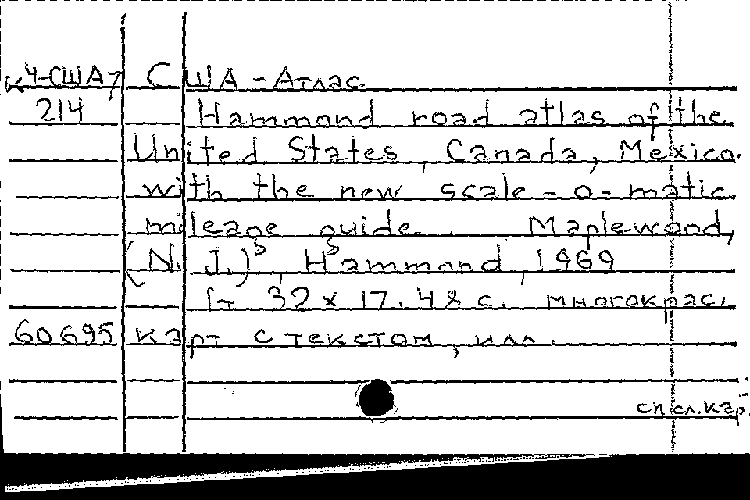 к4-США/ США - Атлас.
214 Hammond road atlas of the
United States, Canada, Mexico.
with the new scale-o-matic
mileage guide. Maplewood,
(N. J.), Hammond, 1969
32 x 17. 48 с. многокрас.
60695 карт с текстом, илл.
сп сл. кар.